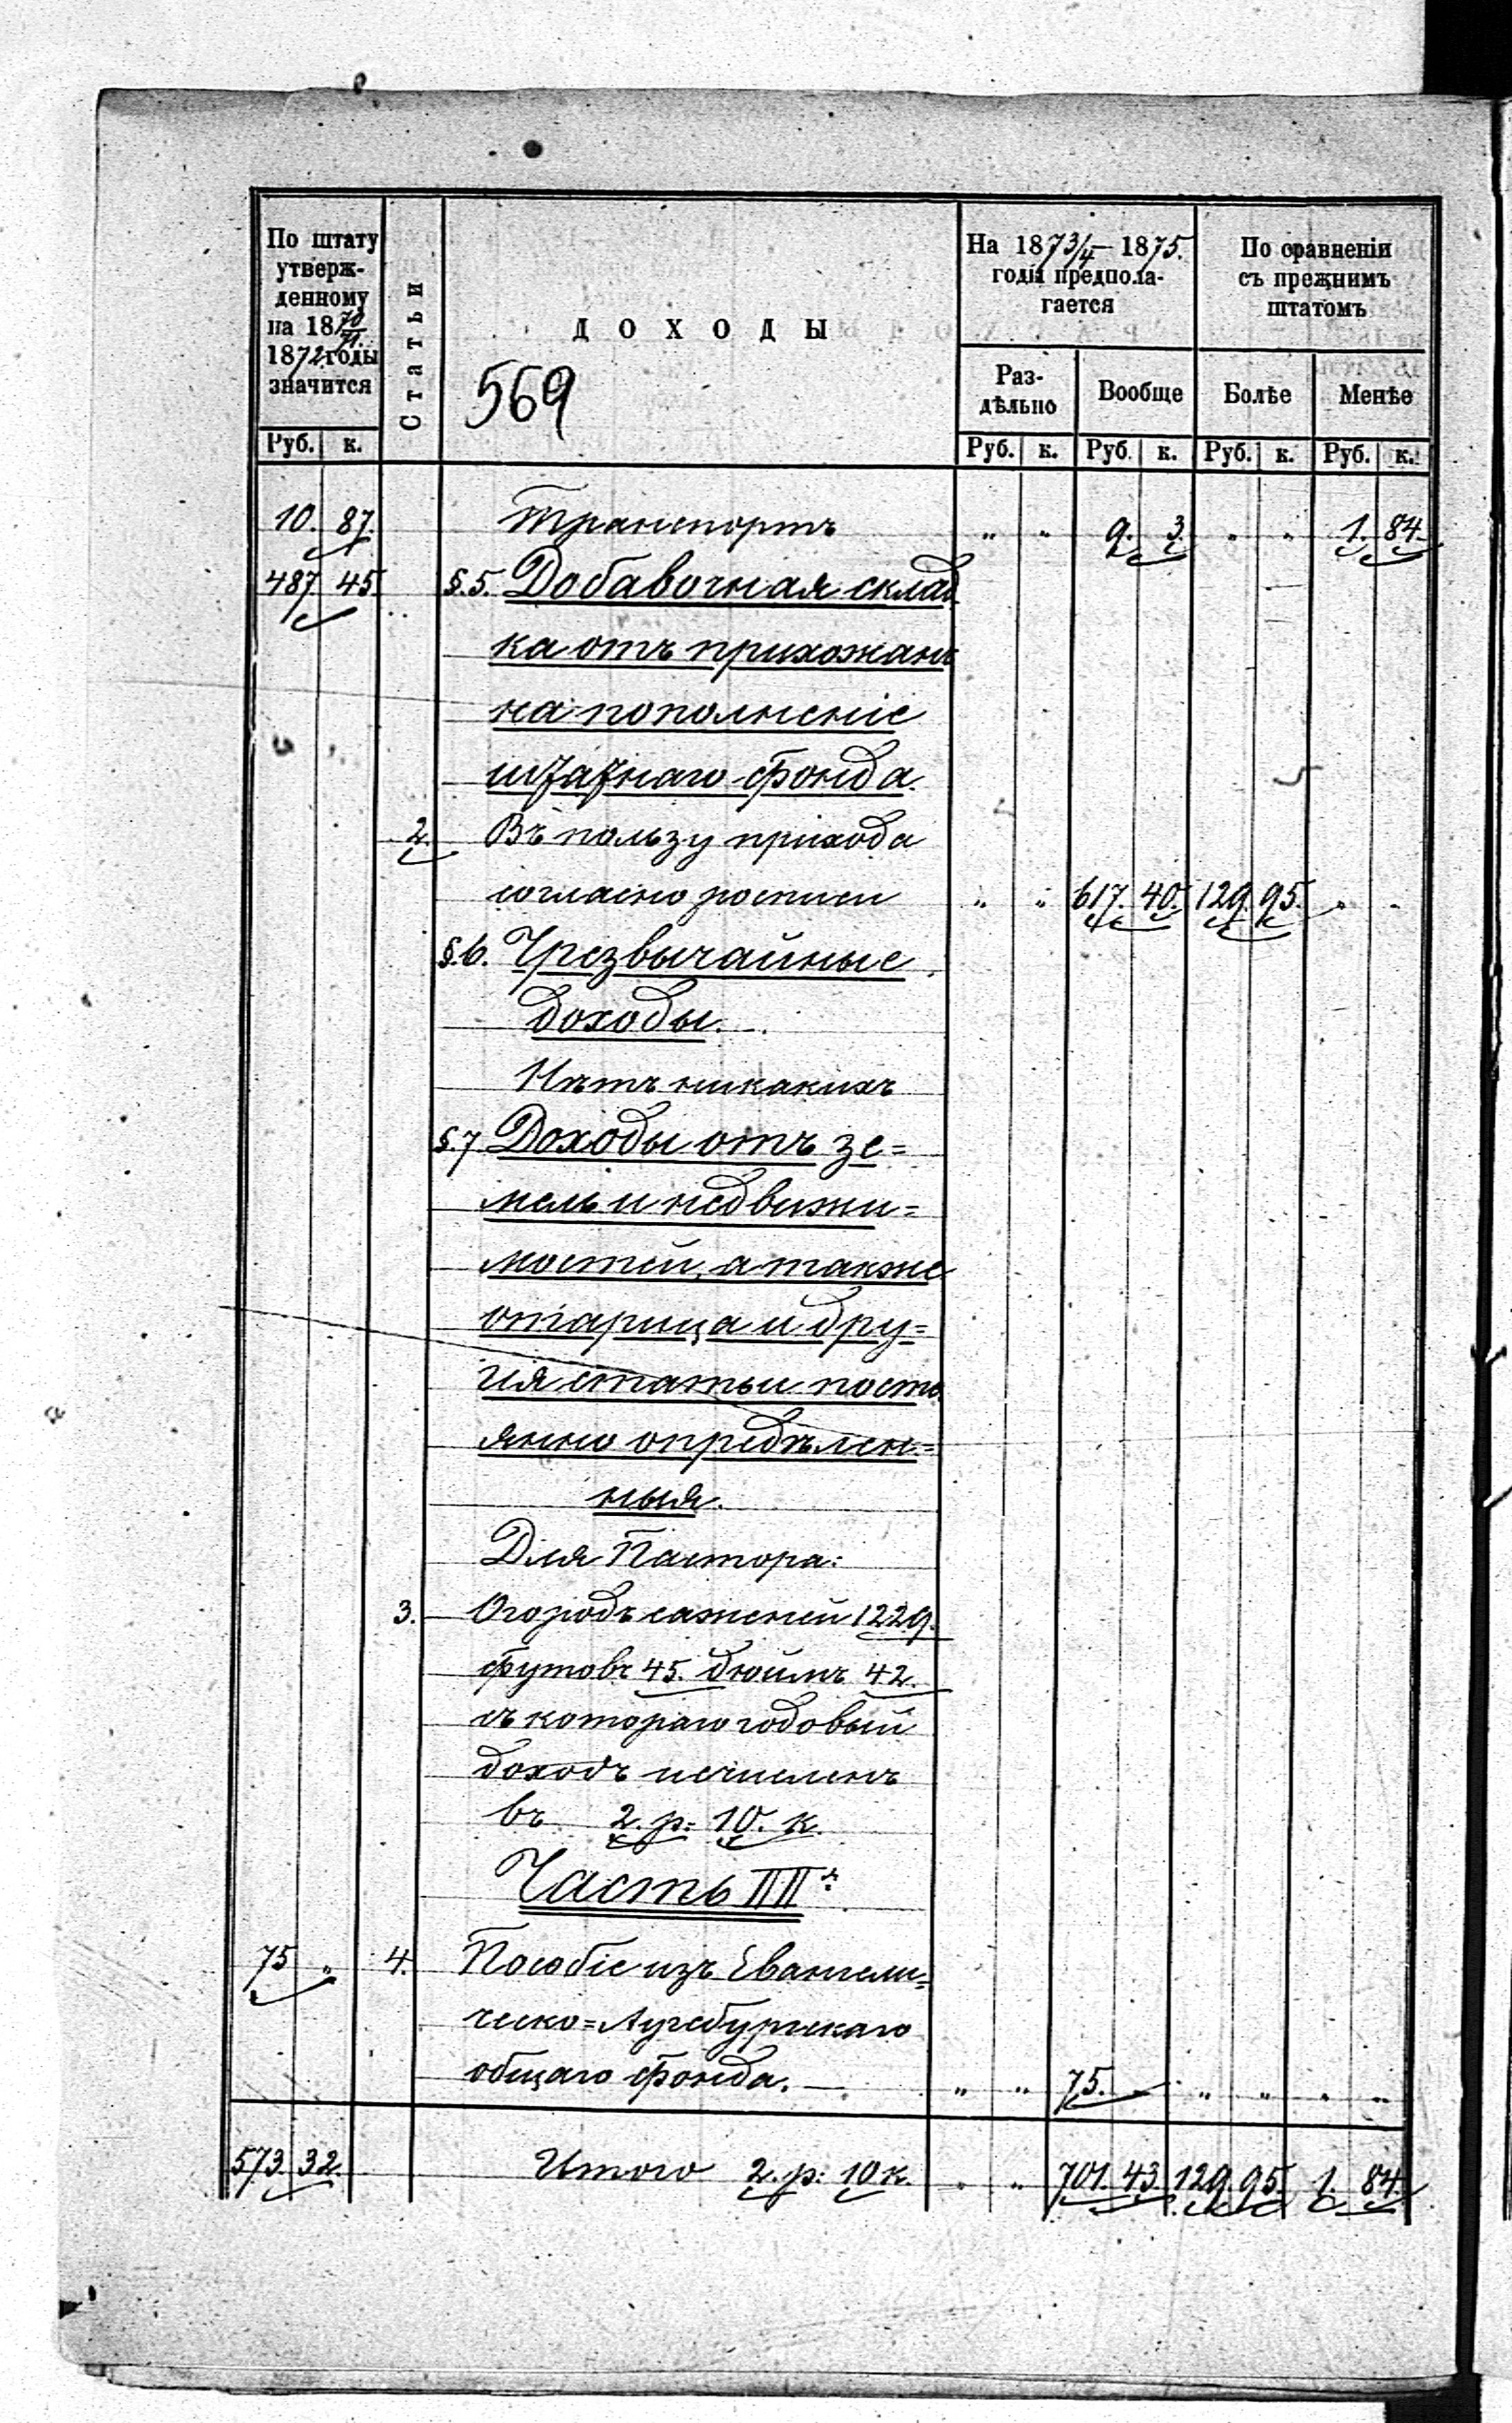 По штату
утверж-
денному
на 1870/71.
1872 годы
значится
Статьи
ДОХОДЫ
569
На 1873/4 – 1875.
годы предпола-
гается
По сравненіи
съ прежнимъ
штатомъ
Раз-
дѣльно
Вообще
Болѣе
Менѣе
Руб. к. Руб. к. Руб. к. Руб. к. Руб. к.
10. 87. Транспортъ " " 9. 3. " " 1. 84.
487 45. §.5. Добавочная склад-
ка отъ прихожанъ
на пополненіе
штатнаго фонда.
2. Въ пользу прихода
согласно росписи " " 617. 40. 129. 95. " "
§.6. Чрезвычайные
доходы.
Нѣтъ никакихъ
§.7 Доходы отъ зе=
мель и недвижи=
мостей, а также
отарица и дру=
гія статьи посто
янно опредѣлен=
ныя.
Для Пастора:
3. Огородъ саженей 1229.
футовъ 45. дюймъ 42.
съ котораго годовый
доходъ исчисленъ
въ 2. р. 10. к.
Часть III
75 " 4. Пособіе изъ Евангели=
ческо=Аугсбургскаго
общаго фонда. " " 75. – " " " "
573. 32. Итого 2. р: 10 к. " " 701. 43. 129. 95. 1. 84.